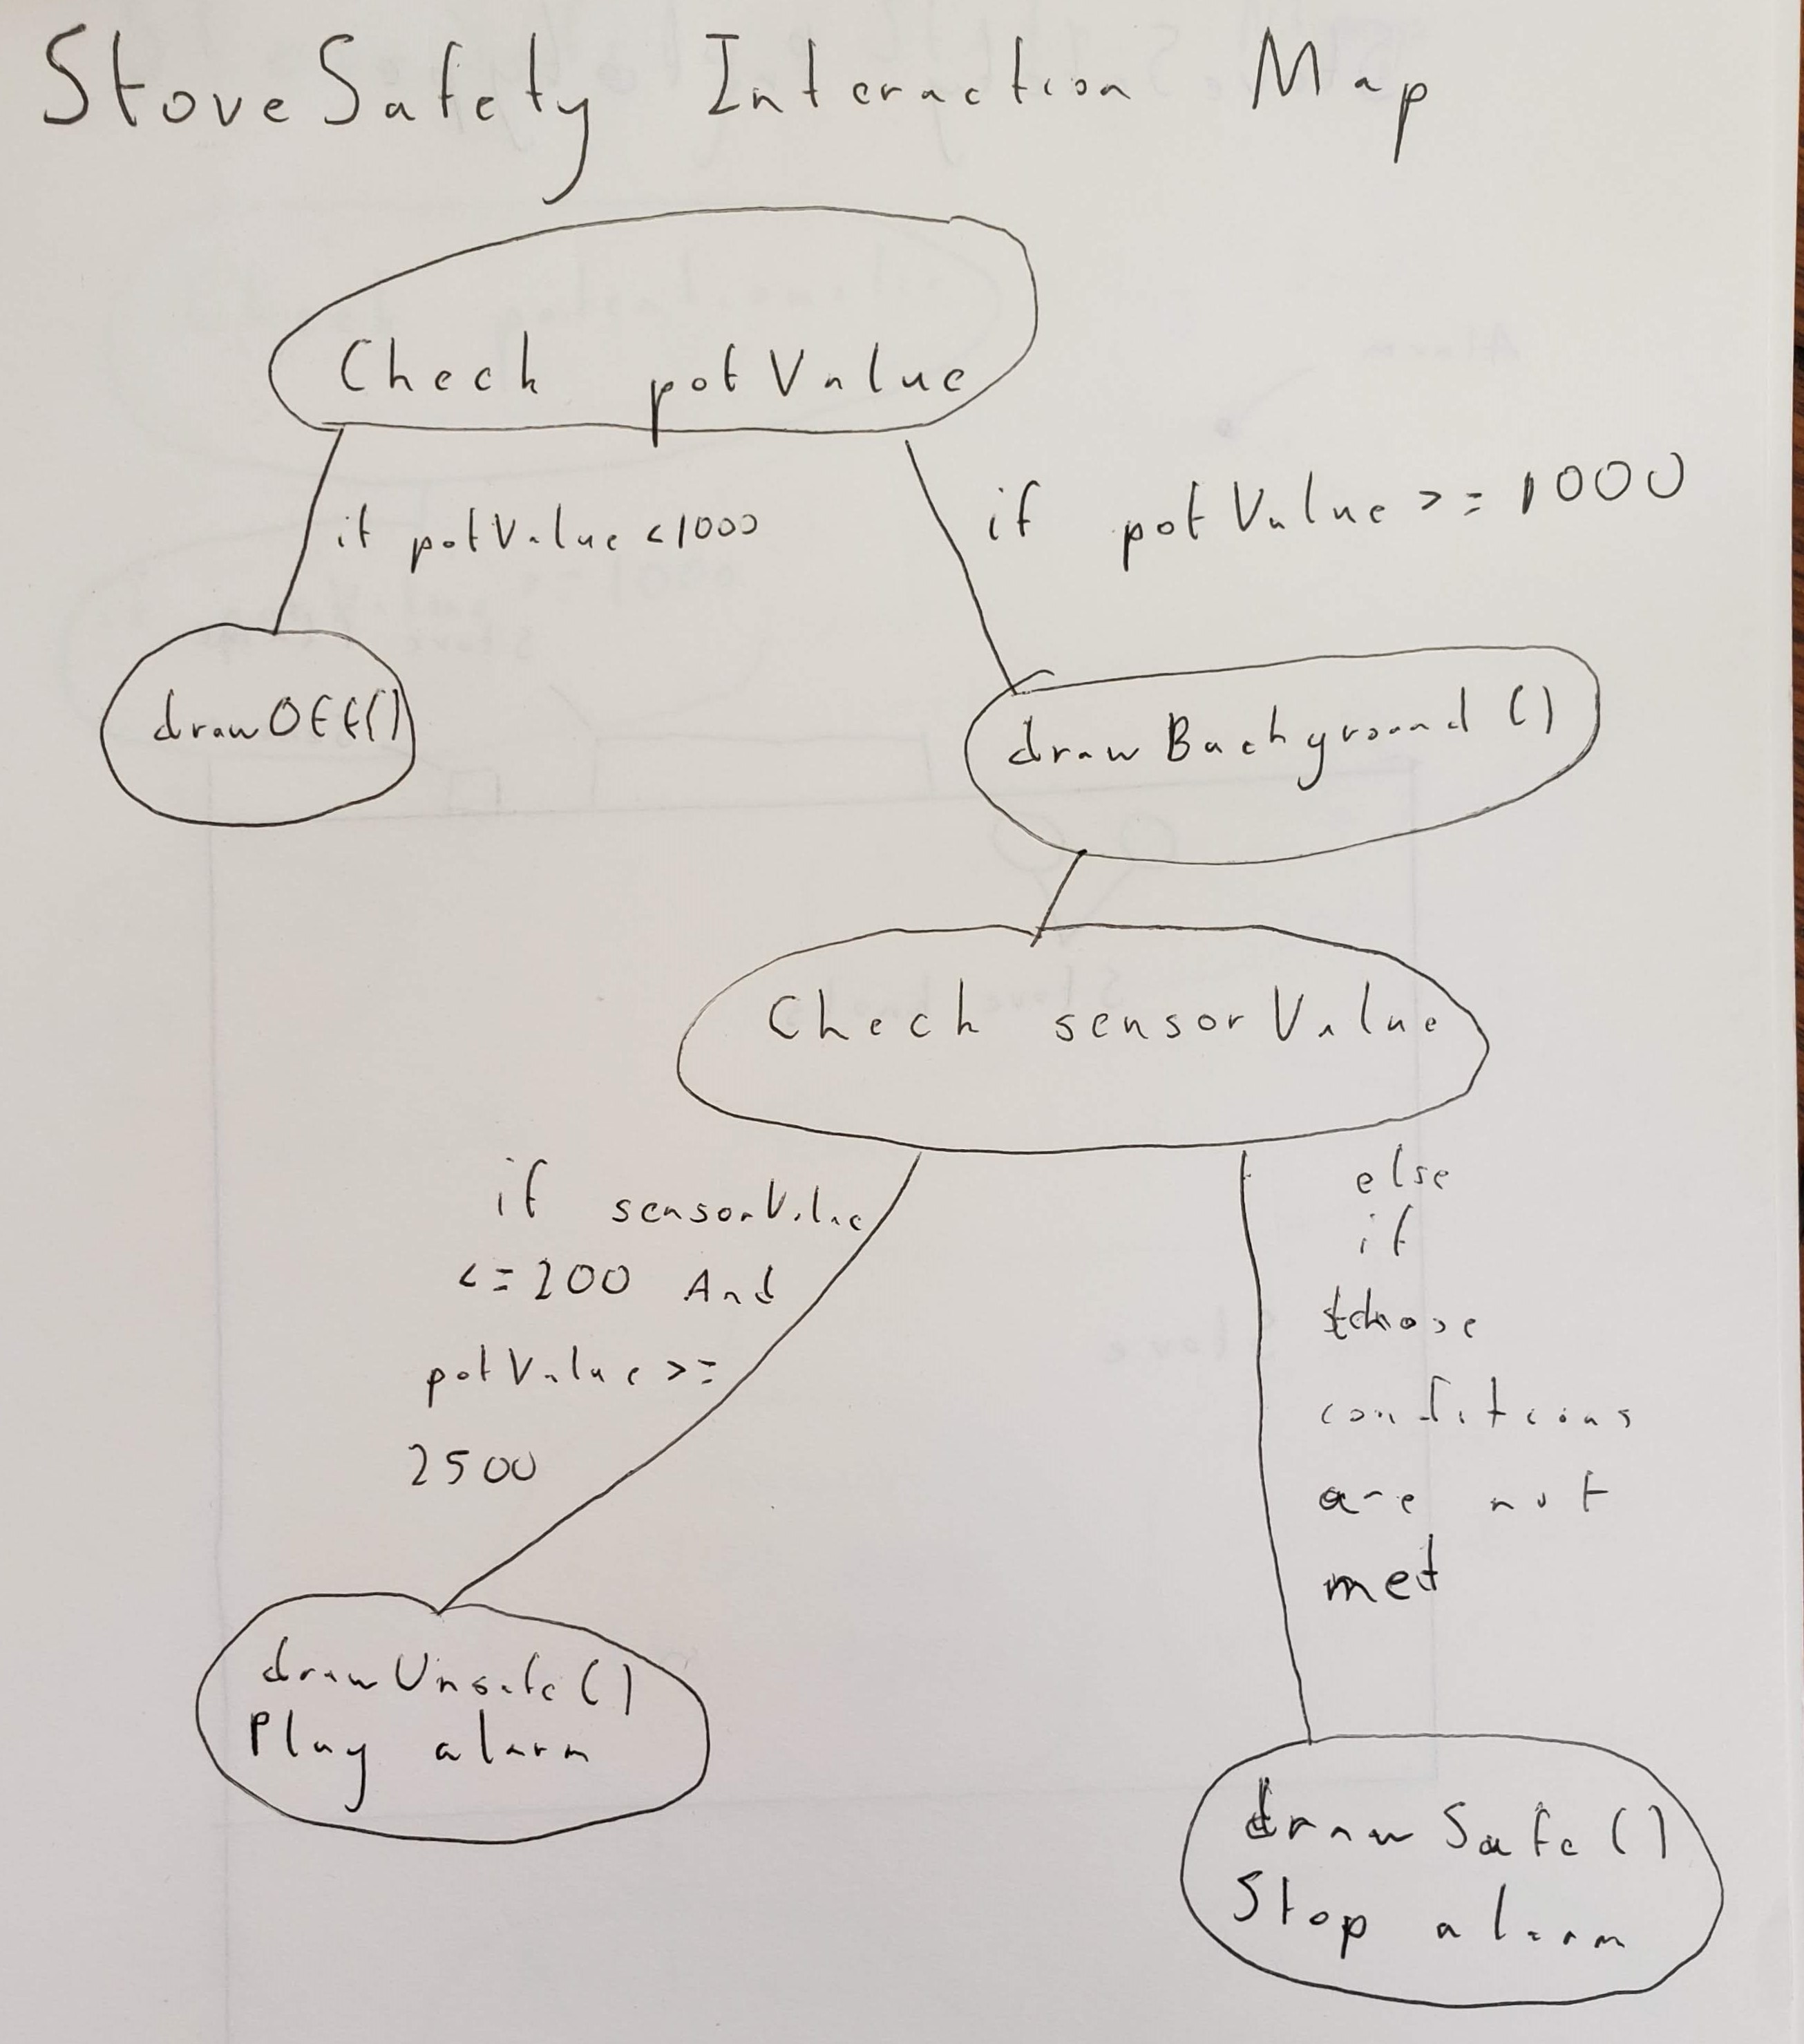 StoveSafety Interaction Map
Check potValue
if potValue <1000
if potValue >= 1000
drawOff()
drawBackground()
Check sensorValue
if sensorValue
<=200 And
potValue >=
2500
else
if
those
conditions
are not
met
drawUnsafe()
Play alarm
drawSafe()
Stop alarm